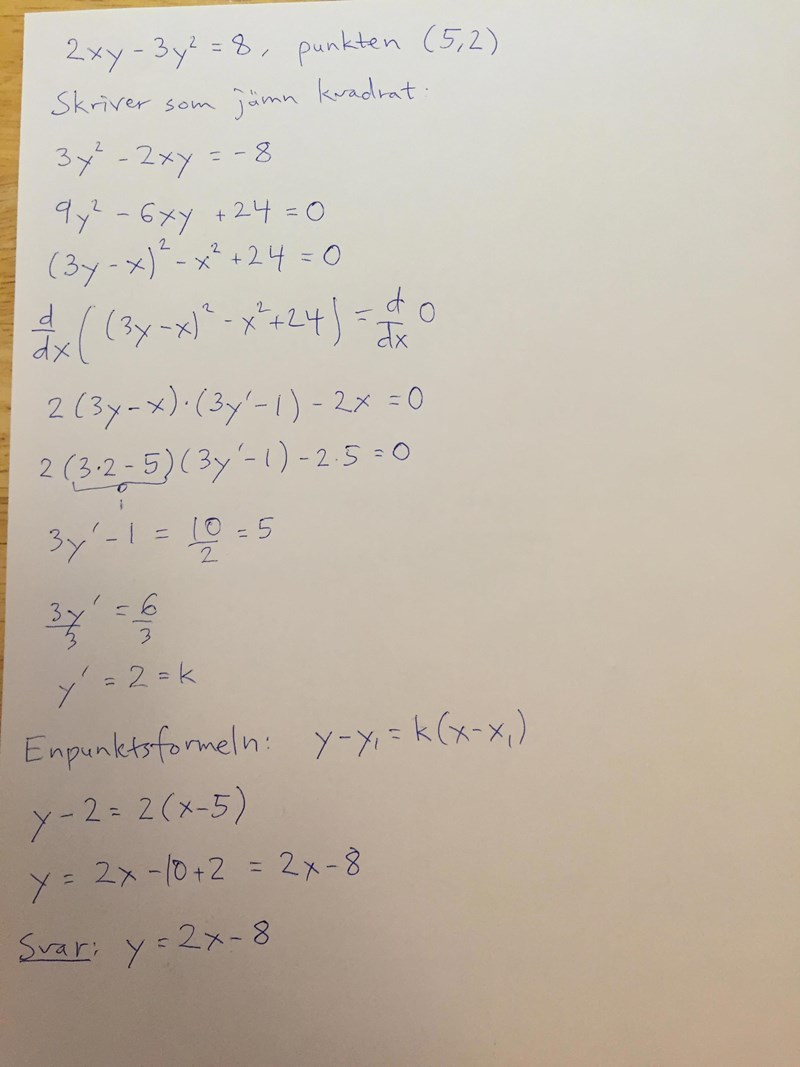 2xy - 3y² = 8, punkten (5,2)
Skriver som jämn kvadrat:
3y² - 2xy = -8
9y² - 6xy + 24 = 0
(3y - x)² - x² + 24 = 0
d/dx ((3y - x)² - x² + 24) = d/dx 0
2(3y - x)·(3y' - 1) - 2x = 0
2(3·2 - 5)(3y' - 1) - 2·5 = 0
1
3y' - 1 = 10/2 = 5
3y'/3 = 6/3
y' = 2 = k
Enpunktsformeln: y - y₁ = k(x - x₁)
y - 2 = 2(x - 5)
y = 2x - 10 + 2 = 2x - 8
Svar: y = 2x - 8